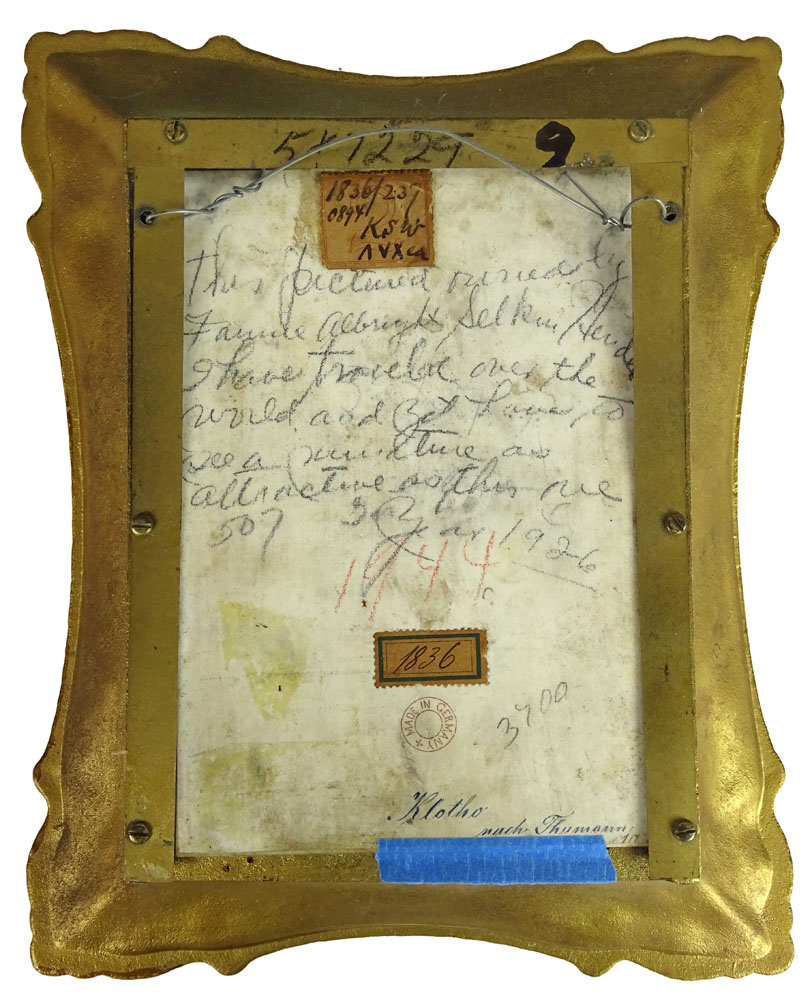 5 1 2 2 5 9
1836/237
0894
KSW
This pictured owned by
Fannie Albright Selkin
I have traveled over the
world and yet have to
see a miniture as
attractive as this one
507 Year 1926
1944
1836
MADE IN GERMANY
3700
Klotho
nach Thumann